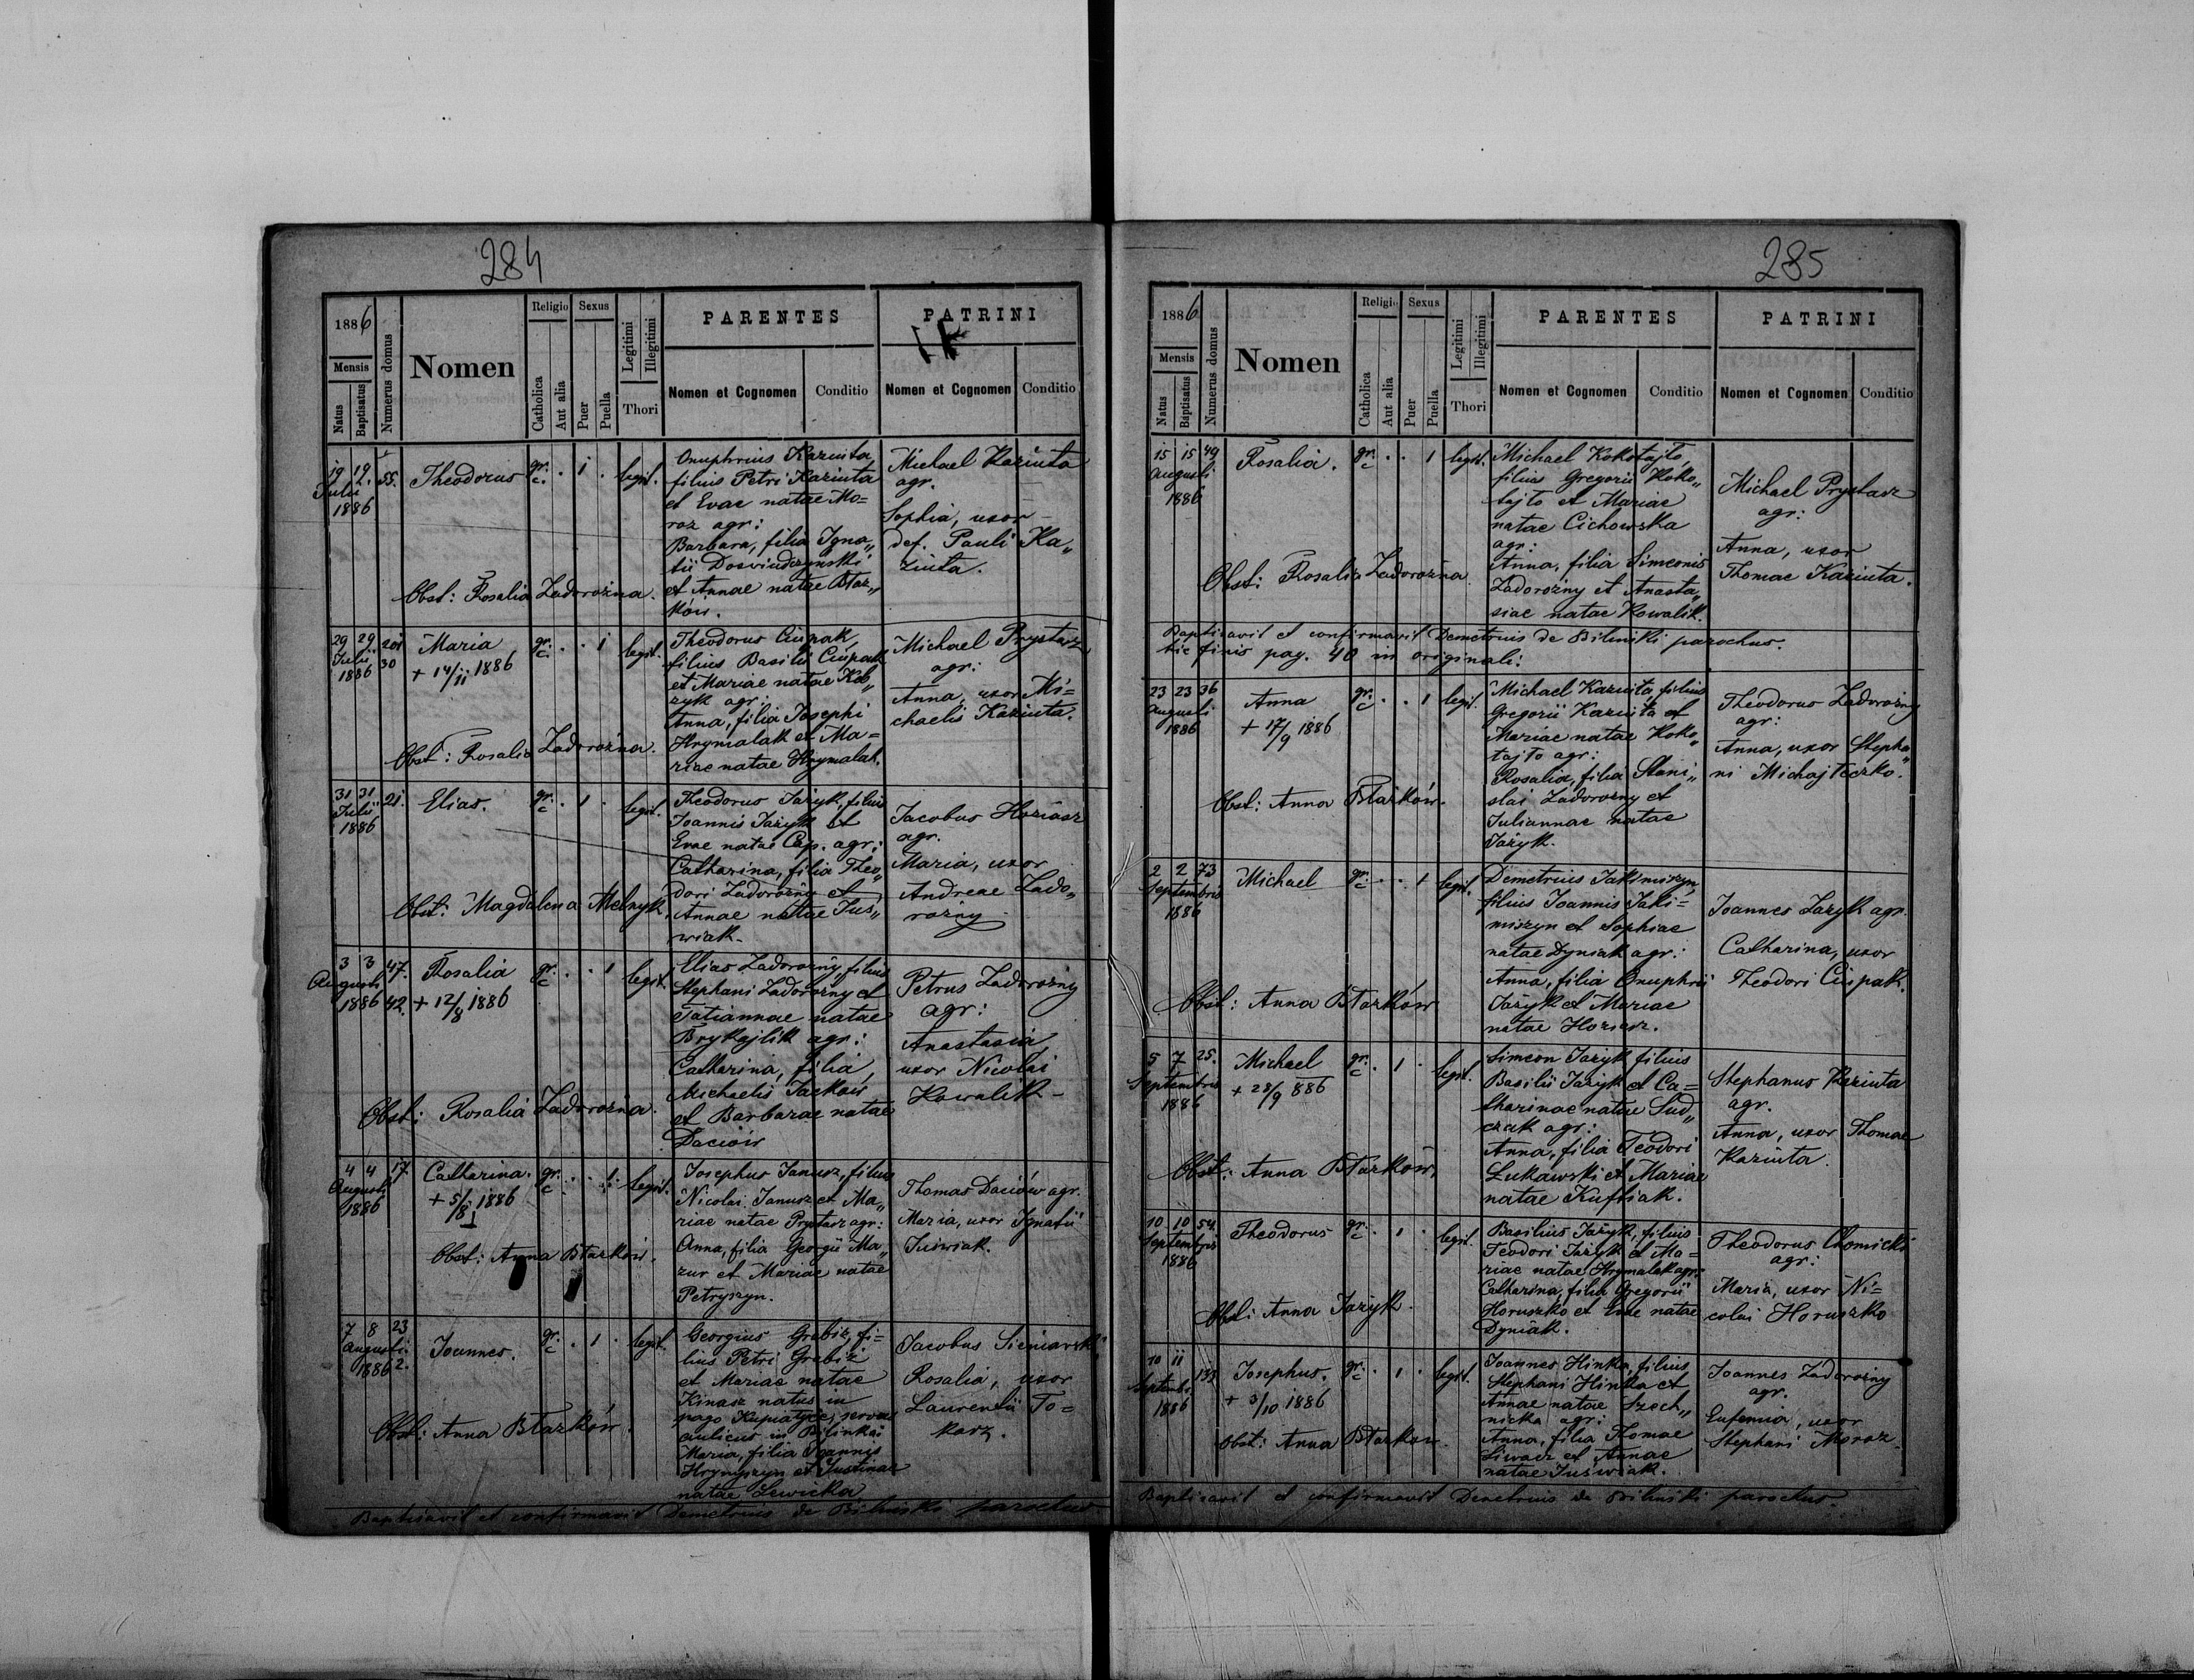 284
1886
Mensis
Natus
Baptisatus
Numerus domus
Nomen
Religio
Catholica
Aut alia
Sexus
Puer
Puella
Legitimi
Illegitimi
Thori
PARENTES
Nomen et Cognomen
Conditio
PATRINI
Nomen et Cognomen
Conditio
19 19 55.
Julii
1886
Theodorus
gr. c. . 1 . legit.
Onuphrius Kaziuta,
filius Petri Kaziuta
et Evae natae Mo=
roz agr:
Barbara, filia Igna„
tii Doswiudczynski
et Annae natae Błaz„
ków.
Michael Kaziuta
agr.
Sophia, uxor
def. Pauli Ka„
ziuta.
Obst: Rosalia Zadorożna.
29 29 201
Julii 30
1886
Maria
+ 14/11 1886
gr. c. . . 1 legit.
Theodorus Ciupak,
filius Basilii Ciupak
et Mariae natae Kob„
zyk agr:
Anna, filia Josephi
Hrymalak et Ma=
riae natae Hrymalak.
Michael Prystasz
agr:
Anna, uxor Mi=
chaelis Kaziuta.
Obst: Rosalia Zadorożna.
31 31 21.
Julii
1886
Elias.
gr. c . 1 . legit.
Theodorus Jażyk, filius
Joannis Jażyk et
Evae natae Cap. agr:
Catharina, filia Theo„
dori Zadorożny et
Annae natae Jus„
wiak.
Jacobus Horiasz
agr.
Maria, uxor
Andreae Zado„
rożny
Obst: Magdalena Melnyk.
3 3 47.
Augusti
1886 42.
Rosalia
+ 12/8 1886
gr. c . . 1 legit.
Elias Zadorożny, filius
Stephani Zadorożny et
Tatiannae natae
Brykajlik agr:
Catharina, filia,
Michaelis Jackow
et Barbarae natae
Daciów
Petrus Zadorożny
agr:
Anastasia,
uxor Nicolai
Kowalik
Obst: Rosalia Zadorożna.
4 4 17.
Augusti
1886
Catharina.
+ 5/8 1886
gr. c . . 1. legit.
Josephus Janusz, filius
Nicolai Janusz et Ma„
riae natae Prystasz agr:
Anna, filia Georgii Ma„
zur et Mariae natae
Petryszyn.
Thomas Daciów agr.
Maria, uxor Ignatii
Juświak.
Obst: Anna Błazków.
7 8 23
Augusti
1886 2.
Joannes.
gr. c . 1 . legit.
Georgius Grabiz, fi=
lius Petri Grabiz
et Mariae natae
Kinasz natus in
pago Kupiatycze, servus
aulicus in Bilinka:
Maria, filia Joannis
Hrynyszyn et Justinae
natae Lewicka
Jacobus Sieniawski
Rosalia, uxor
Laurentii To=
karz.
Obst: Anna Błazków.
Baptisavit et confirmavit Demetrius de Biliński parochus.
285
1886
Mensis
Natus
Baptisatus
Numerus domus
Nomen
Religio
Catholica
Aut alia
Sexus
Puer
Puella
Legitimi
Illegitimi
Thori
PARENTES
Nomen et Cognomen
Conditio
PATRINI
Nomen et Cognomen
Conditio
15 15 49
Augusti
1886
Rosalia.
gr. c . . 1 legit.
Michael Kokotajło,
filius Gregorii Koko„
tajło et Mariae
natae Cichowska
agr:
Anna, filia Simeonis
Zadorożny et Anasta„
siae natae Kowalik.
Michael Prystasz
agr:
Anna, uxor
Thomae Kaziuta.
Obst: Rosalia Zadorożna.
Baptisavit et confirmavit Demetrius de Biliński parochus.
hic finis pag. 40 in originali.
23 23 36
Augusti
1886
Anna
+ 17/9 1886
gr. c . . 1 legit.
Michael Kaziuta, filius
Gregorii Kaziuta et
Mariae natae Koko„
tajło agr:
Rosalia, filia Stani„
slai Zadorozny et
Juliannae natae
Jażyk.
Theodorus Zadorożny
agr:
Anna, uxor Stepha„
ni Michajłeczko.
Obst: Anna Błazków.
2 2 73
Septembris
1886
Michael
gr. c . . 1 legit.
Demetrius Jakimiszyn,
filius Joannis Jaki=
miszyn et Sophiae
natae Dyniak agr:
Anna, filia Onuphrii
Jażyk et Mariae
natae Horiasz.
Joannes Jazyk agr.
Catharina, uxor
Theodori Ciupak.
Obst: Anna Błazków
5 7 25.
Septembris
1886
Michael
+ 28/9 886
gr. c . 1 . legit.
Simeon Jażyk filius
Basilii Jażyk et Ca=
tharinae natae Sud„
czak agr:
Anna, filia Teodori
Łukawski et Mariae
natae Kuftiak.
Stephanus Kaziuta
agr.
Anna, uxor Thomae
Kaziuta.
Obst: Anna Błazków.
10 10 54.
Septembris
1886
Theodorus
gr. c . 1 . legit.
Basilius Jażyk, filius
Teodori Jażyk et Ma=
riae natae Hrymalak agr:
Catharina, filia Gregorii
Horuszko et Evae natae
Dyniak.
Theodorus Chomicki
agr:
Maria, uxor Ni=
colai Horuszko
Obst: Anna Jażyk.
10 11 133
Septembr.
1886
Josephus.
+ 3/10 1886
gr. c . 1 . legit.
Joannes Hinka, filius
Stephani Hinka et
Annae natae Szech„
nicka agr:
Anna, filia Thomae
Siwacz et Annae
natae Juświak.
Joannes Zadorożny
agr.
Eufemia, uxor
Stephani Moroz
Obst: Anna Błazkow.
Baptisavit et confirmavit Demetrius de Biliński parochus.